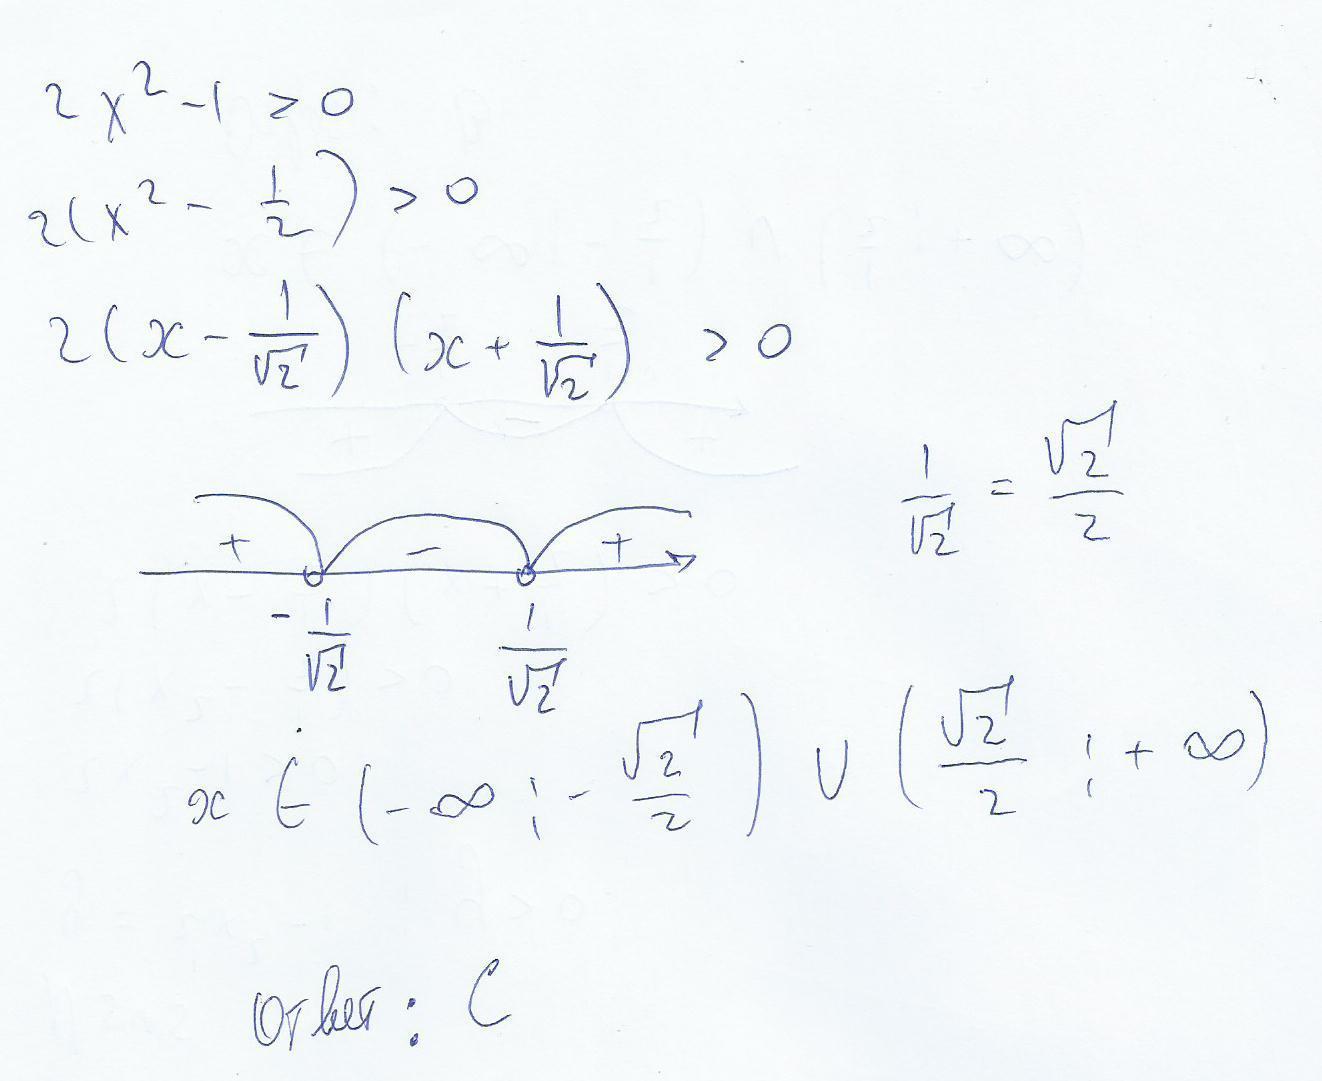 2x² - 1 > 0
2(x² - 1/2) > 0
2(x - 1/√2) (x + 1/√2) > 0
1/√2 = √2/2
+ - +
-1/√2 1/√2
x ∈ (-∞ ; -√2/2) ∪ (√2/2 ; +∞)
Ответ: C